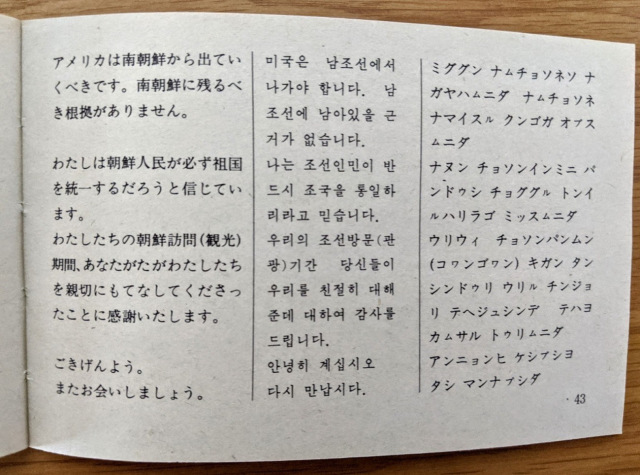 アメリカは南朝鮮から出てい
くべきです。南朝鮮に残るべ
き根拠がありません。
わたしは朝鮮人民が必ず祖国
を統一するだろうと信じてい
ます。
わたしたちの朝鮮訪問(観光)
期間、あなたがたがわたしたち
を親切にもてなしてくださっ
たことに感謝いたします。
ごきげんよう。
またお会いしましょう。
미국은 남조선에서
나가야 합니다. 남
조선에 남아있을 근
거가 없습니다.
나는 조선인민이 반
드시 조국을 통일하
리라고 믿습니다.
우리의 조선방문(관
광)기간 당신들이
우리를 친절히 대해
준데 대하여 감사를
드립니다.
안녕히 계십시오
다시 만납시다.
ミググン ナㇺチョソネソ ナ
ガヤハㇺニダ ナㇺチョソネ
ナマイスㇽ クンゴガ オㇷ゚ス
ㇺニダ
ナヌン チョソンインミニ パ
ンドゥシ チョググㇽ トンイ
ㇽハリラゴ ミッスㇺニダ
ウリウィ チョソンパンムン
(コヮンゴヮン) キガン タン
シンドゥリ ウリㇽ チンジョ
リ テヘジュシンデ テハヨ
カㇺサㇽ トゥリㇺニダ
アンニョンヒ ケシㇷ゚ショ
タシ マンナㇷ゚シダ
43